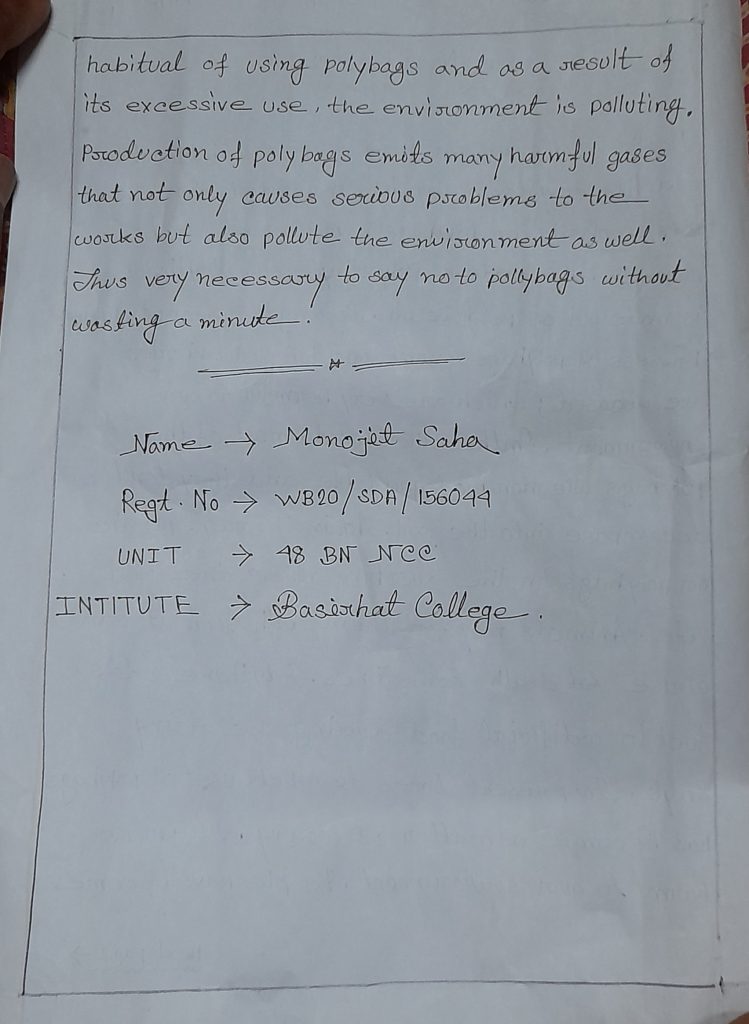 habitual of using polybags and as a result of
its excessive use, the environment is polluting.
Production of polybags emits many harmful gases
that not only causes serious problems to the
works but also pollute the environment as well.
Thus very necessary to say no to pollybags without
wasting a minute.
Name → Monojit Saha
Regt. No → WB20/SDA/156044
UNIT → 48 BN NCC
INTITUTE → Basirhat College.